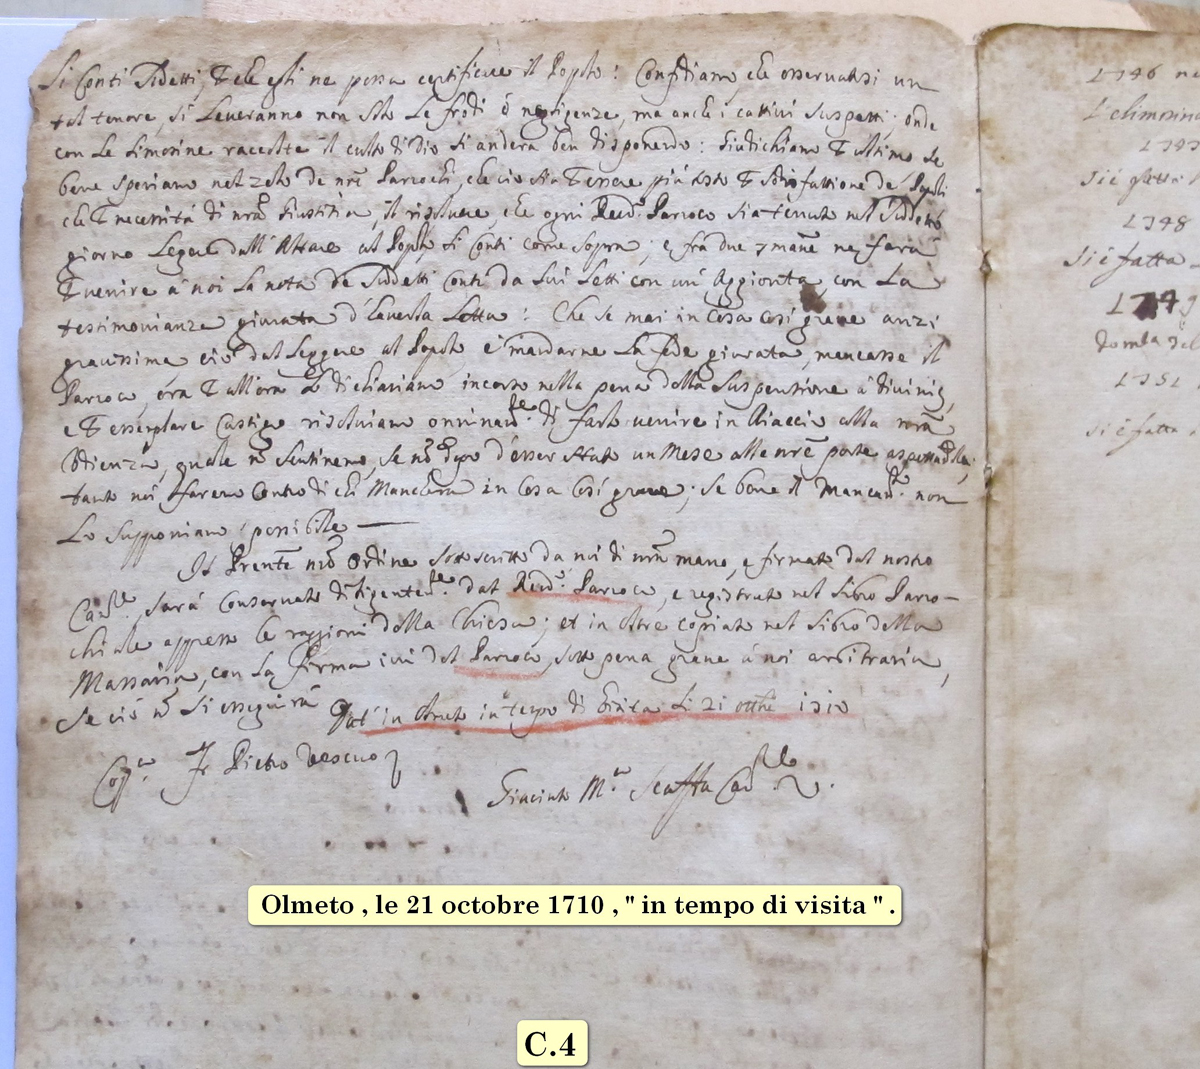 Li Conti sudetti, che esti ne possa certificare il Popolo: Confidiamo, che osservandosi un
tal tenore, si leveranno non solo le frodi ò negligenze, ma anche i cattivi suspetti; onde
con le limosine raccolte il culto di Dio si anderà ben disponendo: Giudichiamo ultimo se
bene speriamo nel zelo de nri Parochi, che ciò sia
che necessità di nra Giustitia, il risolvere che ogni Revd.º Parroco sia tenuto nel suddetto
giorno legere dall'Altare al Popolo li Conti come sopra; e frà due 7mane ne farà
venire à noi la nota de suddetti Conti da lui letti con un'Aggionta con la
testimonianza giurata d'haverla letta: Che se mai in cosa così grave anzi
gravissima ciò dal leggere al Popolo e mandarne la fede giurata, mancasse il
Parroco, ora all'ora lo dichiariamo incorso nella pena della suspensione à divinis,
et essemplare castigo risolviamo onninamte di farlo venire in Aiaccio alla nora
Udienza, quale nō sentiremo, se nō dopo d'esser stato un Mese alle nre porte
tanto noi faremo contro di chi mancherà in cosa così grave; se bene il mancamto non
lo supponiamo possibile —
Il Prente nro Ordine sottoscritto da noi di nra mano, e firmato dal nostro
Canlre sarà conservato diligentemte dal Revd.º Parroco, e registrato nel libro Parro-
chiale appresso le raggioni della Chiesa; et in oltre copiato nel libro della
Massaria, con la firma ivi del Parroco, sotto pena grave à noi arbitraria,
se ciò nō si esseguirà Dat' in Olmeto in tempo di Visita li 21 ottbe 1710
Fr Pietro Vescuo
Giacinto M.ª Scaffa Canlre
1746
L'elimosina
1747
si è fatta
1748
si è fatta
1749
tomba del
1751
si è fatta
Olmeto , le 21 octobre 1710 , " in tempo di visita " .
C.4